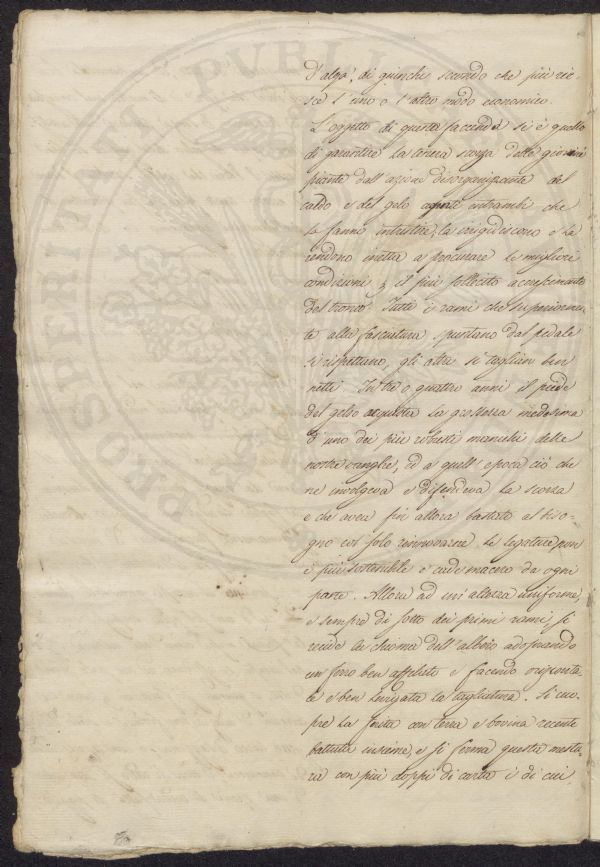 d'alga, di giunchi secondo che più rie-
sce l'uno o l'altro modo economico.
L'oggetto di questa facenda si è quello
di garantire la tenera scorza delle giovani
piante dall'azione disorganizzante del
caldo e del gelo entrambi che
la fanno intristire, la irrigidiscono e la
rendono inetta a procurare le migliori
condizioni il più sollecito accrescimento
del tronco. Tutti i rami che superiormen-
te alla fasciatura spuntano dal pedale
si rispettano, gli altri si taglian ben
netti. In tre o quattro anni il piede
del gelso acquista la grossezza medesima
d'uno dei più robusti manichi delle
nostre vanghe, ed a quell'epoca ciò che
ne involgeva e difendeva la scorza
e che avea fin allora bastato al biso-
gno col solo rinnovarne le legature non
è più sostenibile e cade macero da ogni
parte. Allora ad un'altezza uniforme,
e sempre di sotto dei primi rami, si
recide la chioma dell'albero adoprando
un ferro ben affilato e facendo orizonta-
le e ben levigata la tagliatura. Si cuo-
pre la ferita con terra e bovina recente
battuta insieme, e si ferma questa mestu-
ra con più doppi di carta e di cui
PROSPERITATI PVBLICAE